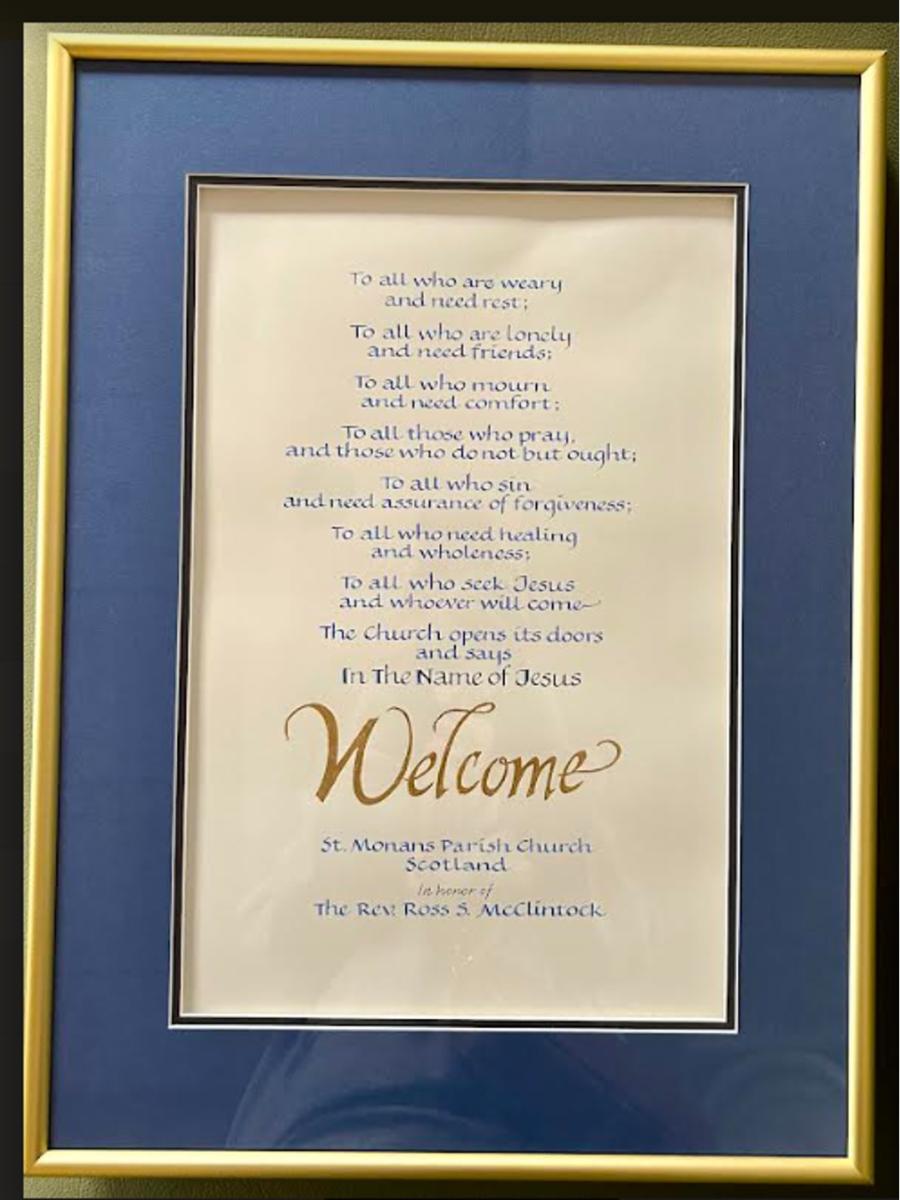 To all who are weary
and need rest;
To all who are lonely
and need friends;
To all who mourn
and need comfort;
To all those who pray,
and those who do not but ought;
To all who sin
and need assurance of forgiveness;
To all who need healing
and wholeness;
To all who seek Jesus
and whoever will come—
The Church opens its doors
and says
In The Name of Jesus
Welcome
St. Monans Parish Church
Scotland
In honor of
The Rev. Ross S. McClintock